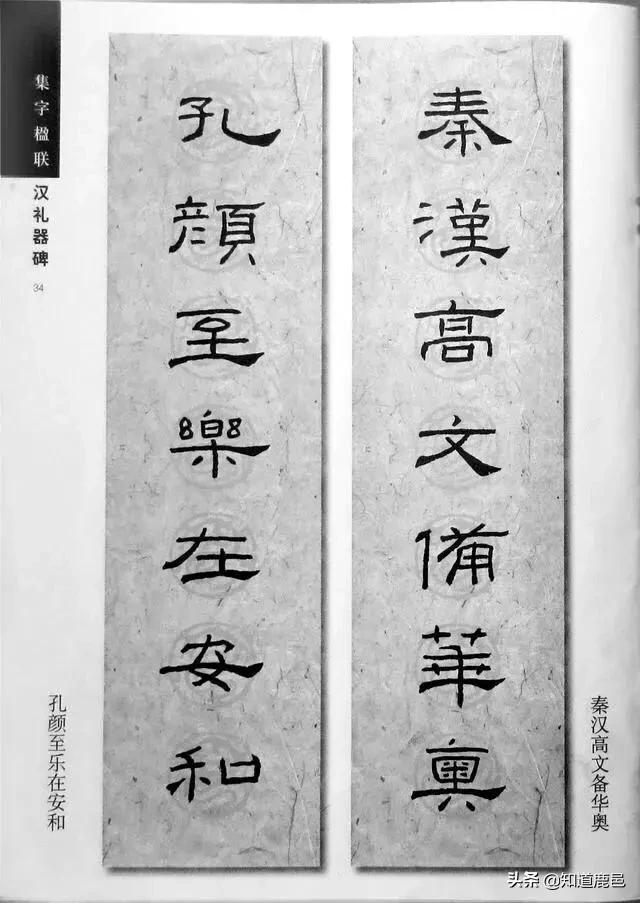 秦漢高文備華奧
孔顏至樂在安和
秦汉高文备华奥
孔颜至乐在安和
集字楹联
汉礼器碑
34
头条 @知道鹿邑